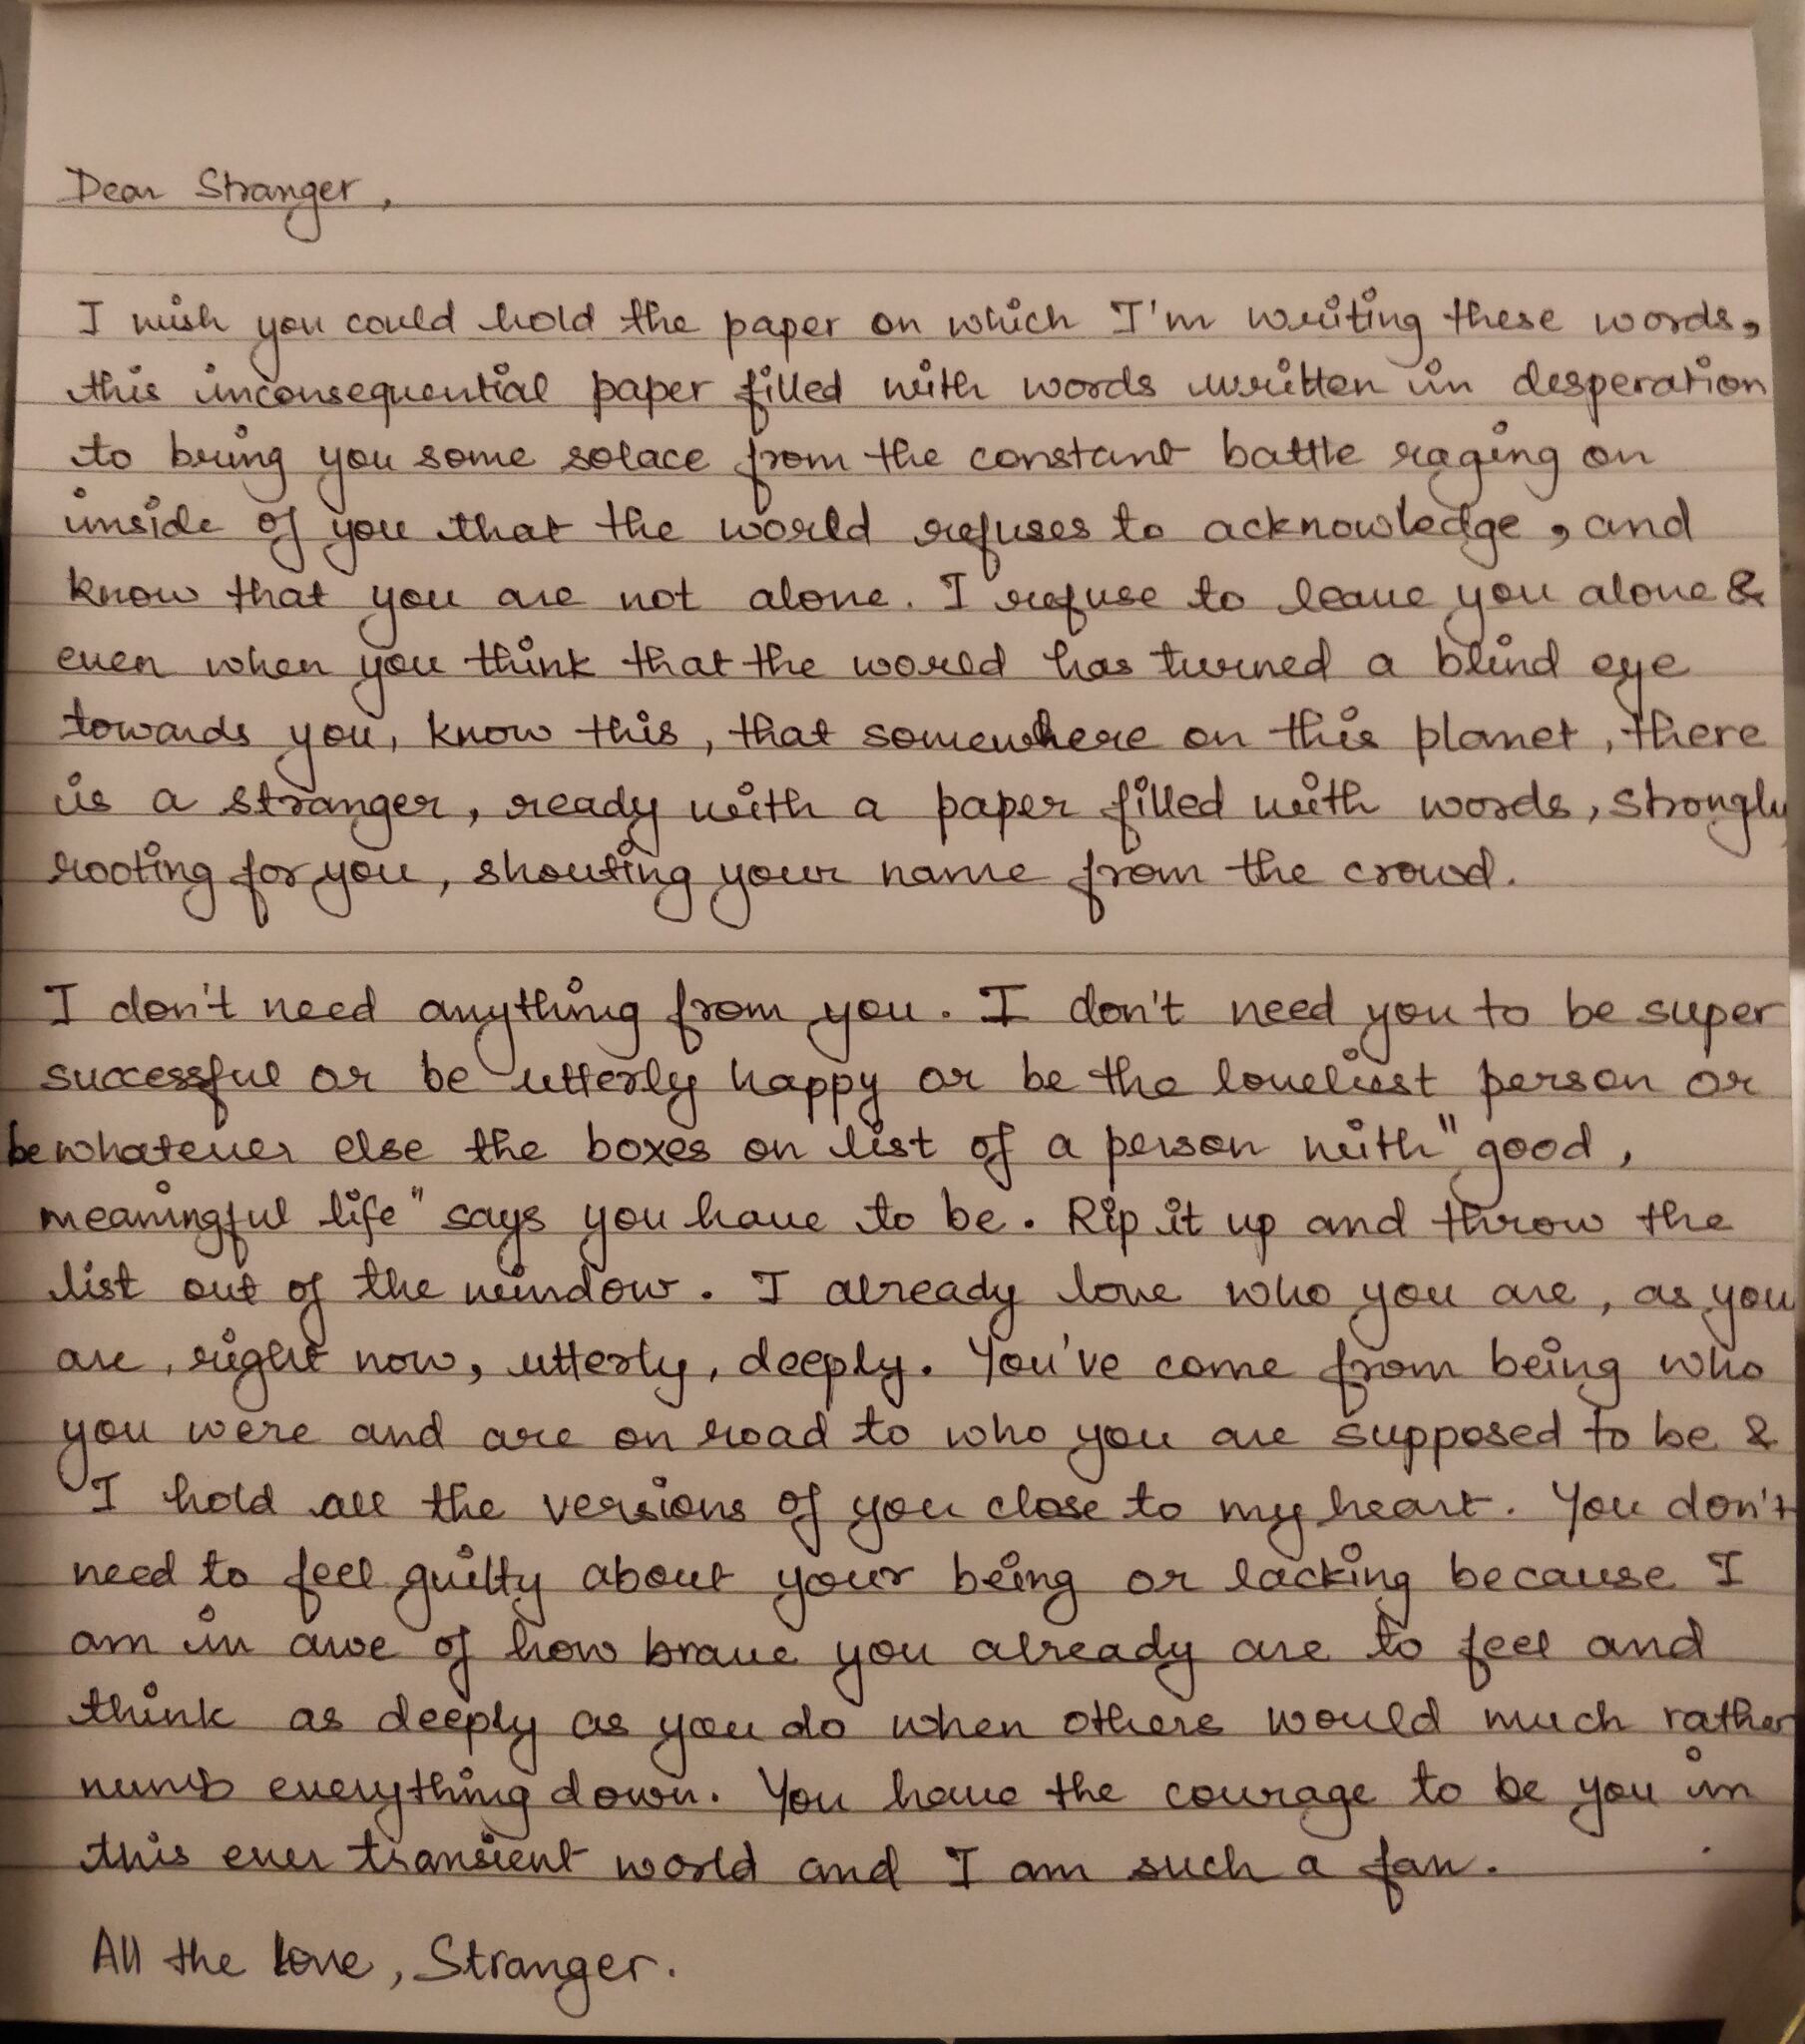 Dear Stranger,
I wish you could hold the paper on which I'm writing these words,
this inconsequential paper filled with words written in desperation
to bring you some solace from the constant battle raging on
inside of you that the world refuses to acknowledge, and
know that you are not alone. I refuse to leave you alone &
even when you think that the world has turned a blind eye
towards you, know this, that somewhere on this planet, there
is a stranger, ready with a paper filled with words, strongly
rooting for you, shouting your name from the crowd.
I don't need anything from you. I don't need you to be super
successful or be utterly happy or be the loveliest person or
be whatever else the boxes on list of a person with "good,
meaningful life" says you have to be. Rip it up and throw the
list out of the window. I already love who you are, as you
are, right now, utterly, deeply. You've come from being who
you were and are on road to who you are supposed to be &
I hold all the versions of you close to my heart. You don't
need to feel guilty about your being or lacking because I
am in awe of how brave you already are to feel and
think as deeply as you do when others would much rather
numb everything down. You have the courage to be you in
this ever transient world and I am such a fan.
All the love, Stranger.